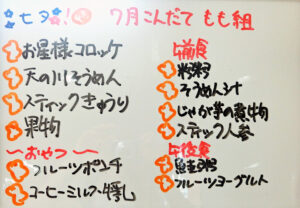 七夕！ 7月こんだて もも組
お星様コロッケ
天の川そうめん
スティックきゅうり
果物
〜おやつ〜
フルーツポンチ
コーヒーミルク牛乳
午前食
粥
そうめん汁
じゃが芋の煮物
スティック人参
午後食
鮭粥
フルーツヨーグルト